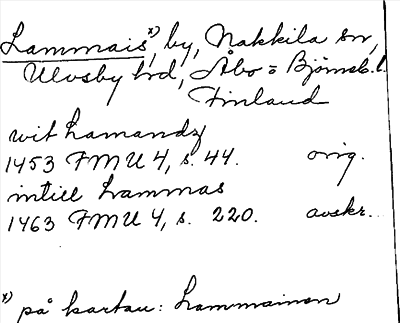 Lammais x), by, Nakkila sn,
Ulvsby hd, Åbo = Björneb. l.
Finland
wit Lamandz
1453 FMU 4, s. 44. orig.
intill Lammas
1463 FMU 4, s. 220. avskr.
x) på kartan: Lammainen